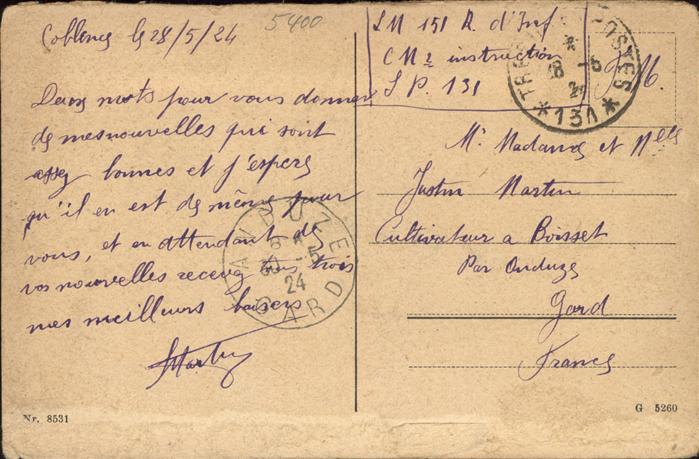 Coblence le 28/5/24
5400
Deux mots pour vous donner
de mes nouvelles qui sont
assez bonnes et j'espère
qu'il en est de même pour
vous, et en attendant de
vos nouvelles recevez tous trois
mes meilleurs baisers
Martin
Nr. 8531
SM 151 R. d'Inf
CM2 instruction
S P. 131
F.M.
POSTES
*131*
Mr Madame et Melle
Justin Martin
Cultivateur a Boisset
Par Anduze
Gard
France
G 5260
ANDUZE
5
24
GARD